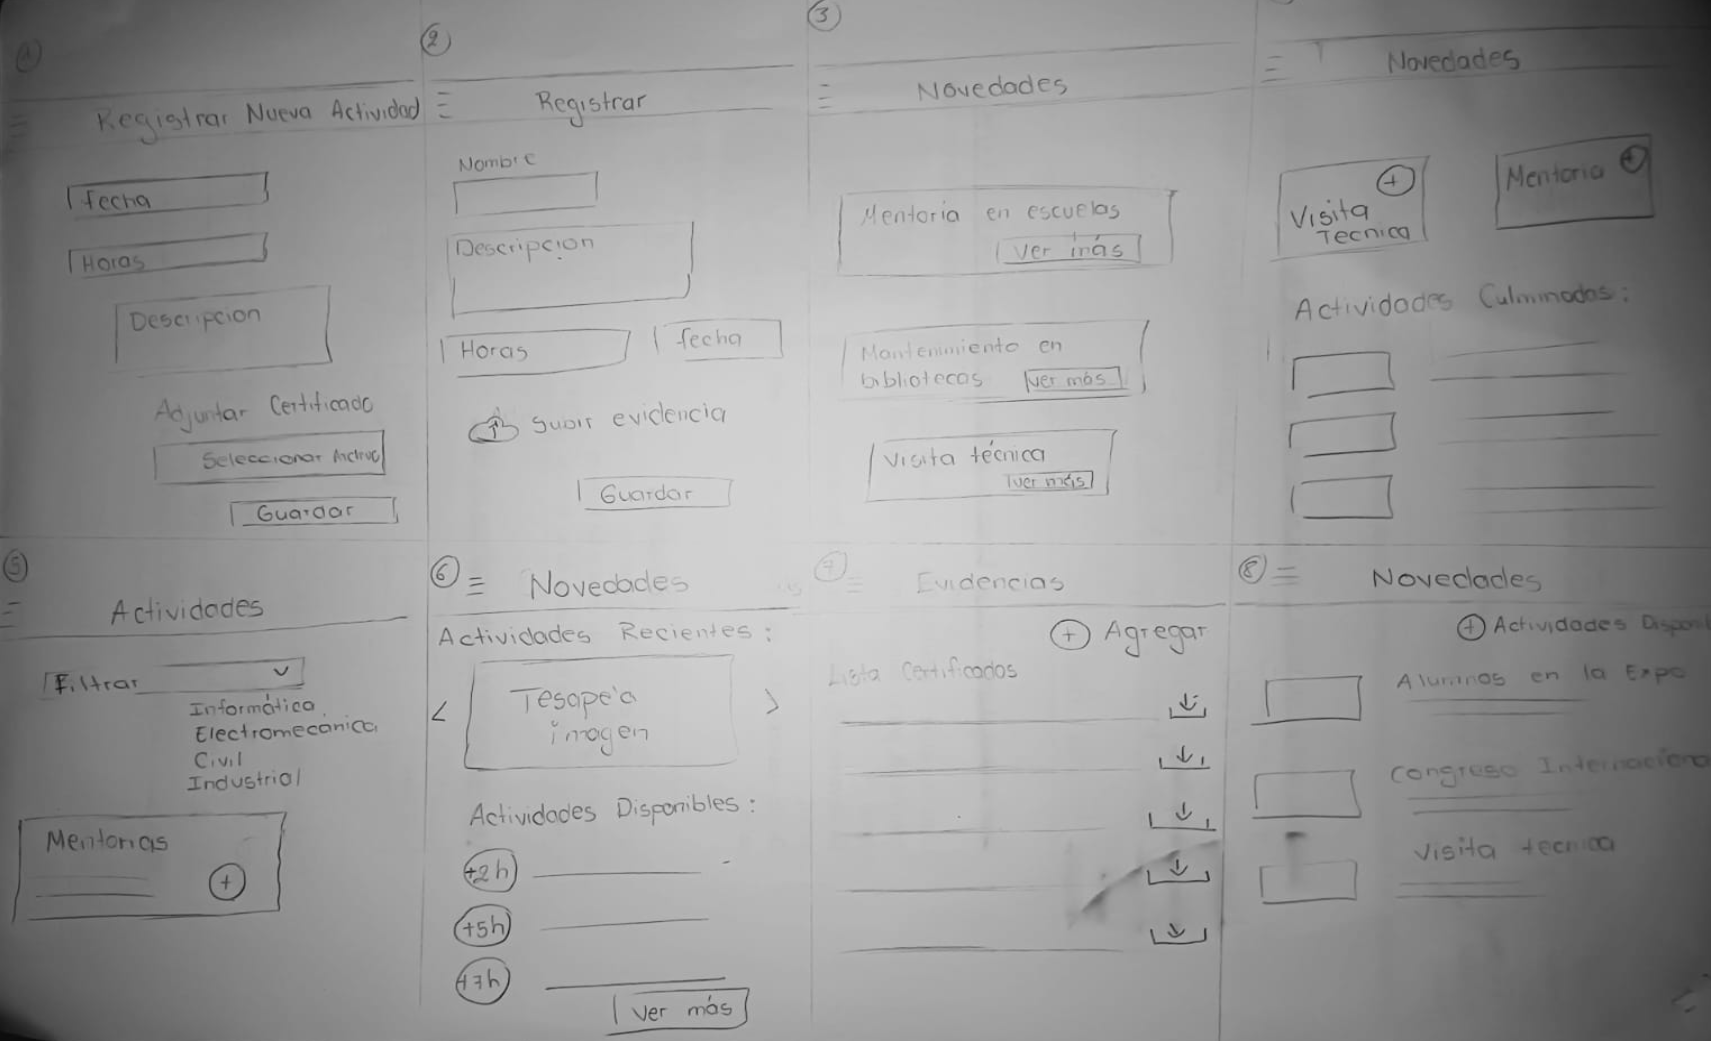 1
Registrar Nueva Actividad
fecha
Horas
Descripcion
Adjuntar Certificado
Seleccionar
Guardar
2
Registrar
Nombre
Descripcion
Horas
fecha
Subir evidencia
Guardar
3
Novedades
Mentoria en escuelas
ver más
Mantenimiento en
bibliotecas ver más
Visita técnica
ver más
Novedades
+
Visita
Tecnica
Mentoria +
Actividades Culminadas:
5
Actividades
Filtrar
Informática
Electromecánica
Civil
Industrial
Mentorias
+
6
Novedades
Actividades Recientes:
< >
imagen
Actividades Disponibles:
+2h
+5h
+7h
Ver más
7
Evidencias
+ Agregar
Lista Certificados
8
Novedades
+ Actividades Disponi
Alumnos en la Expo
Congreso Internaciona
Visita tecnica